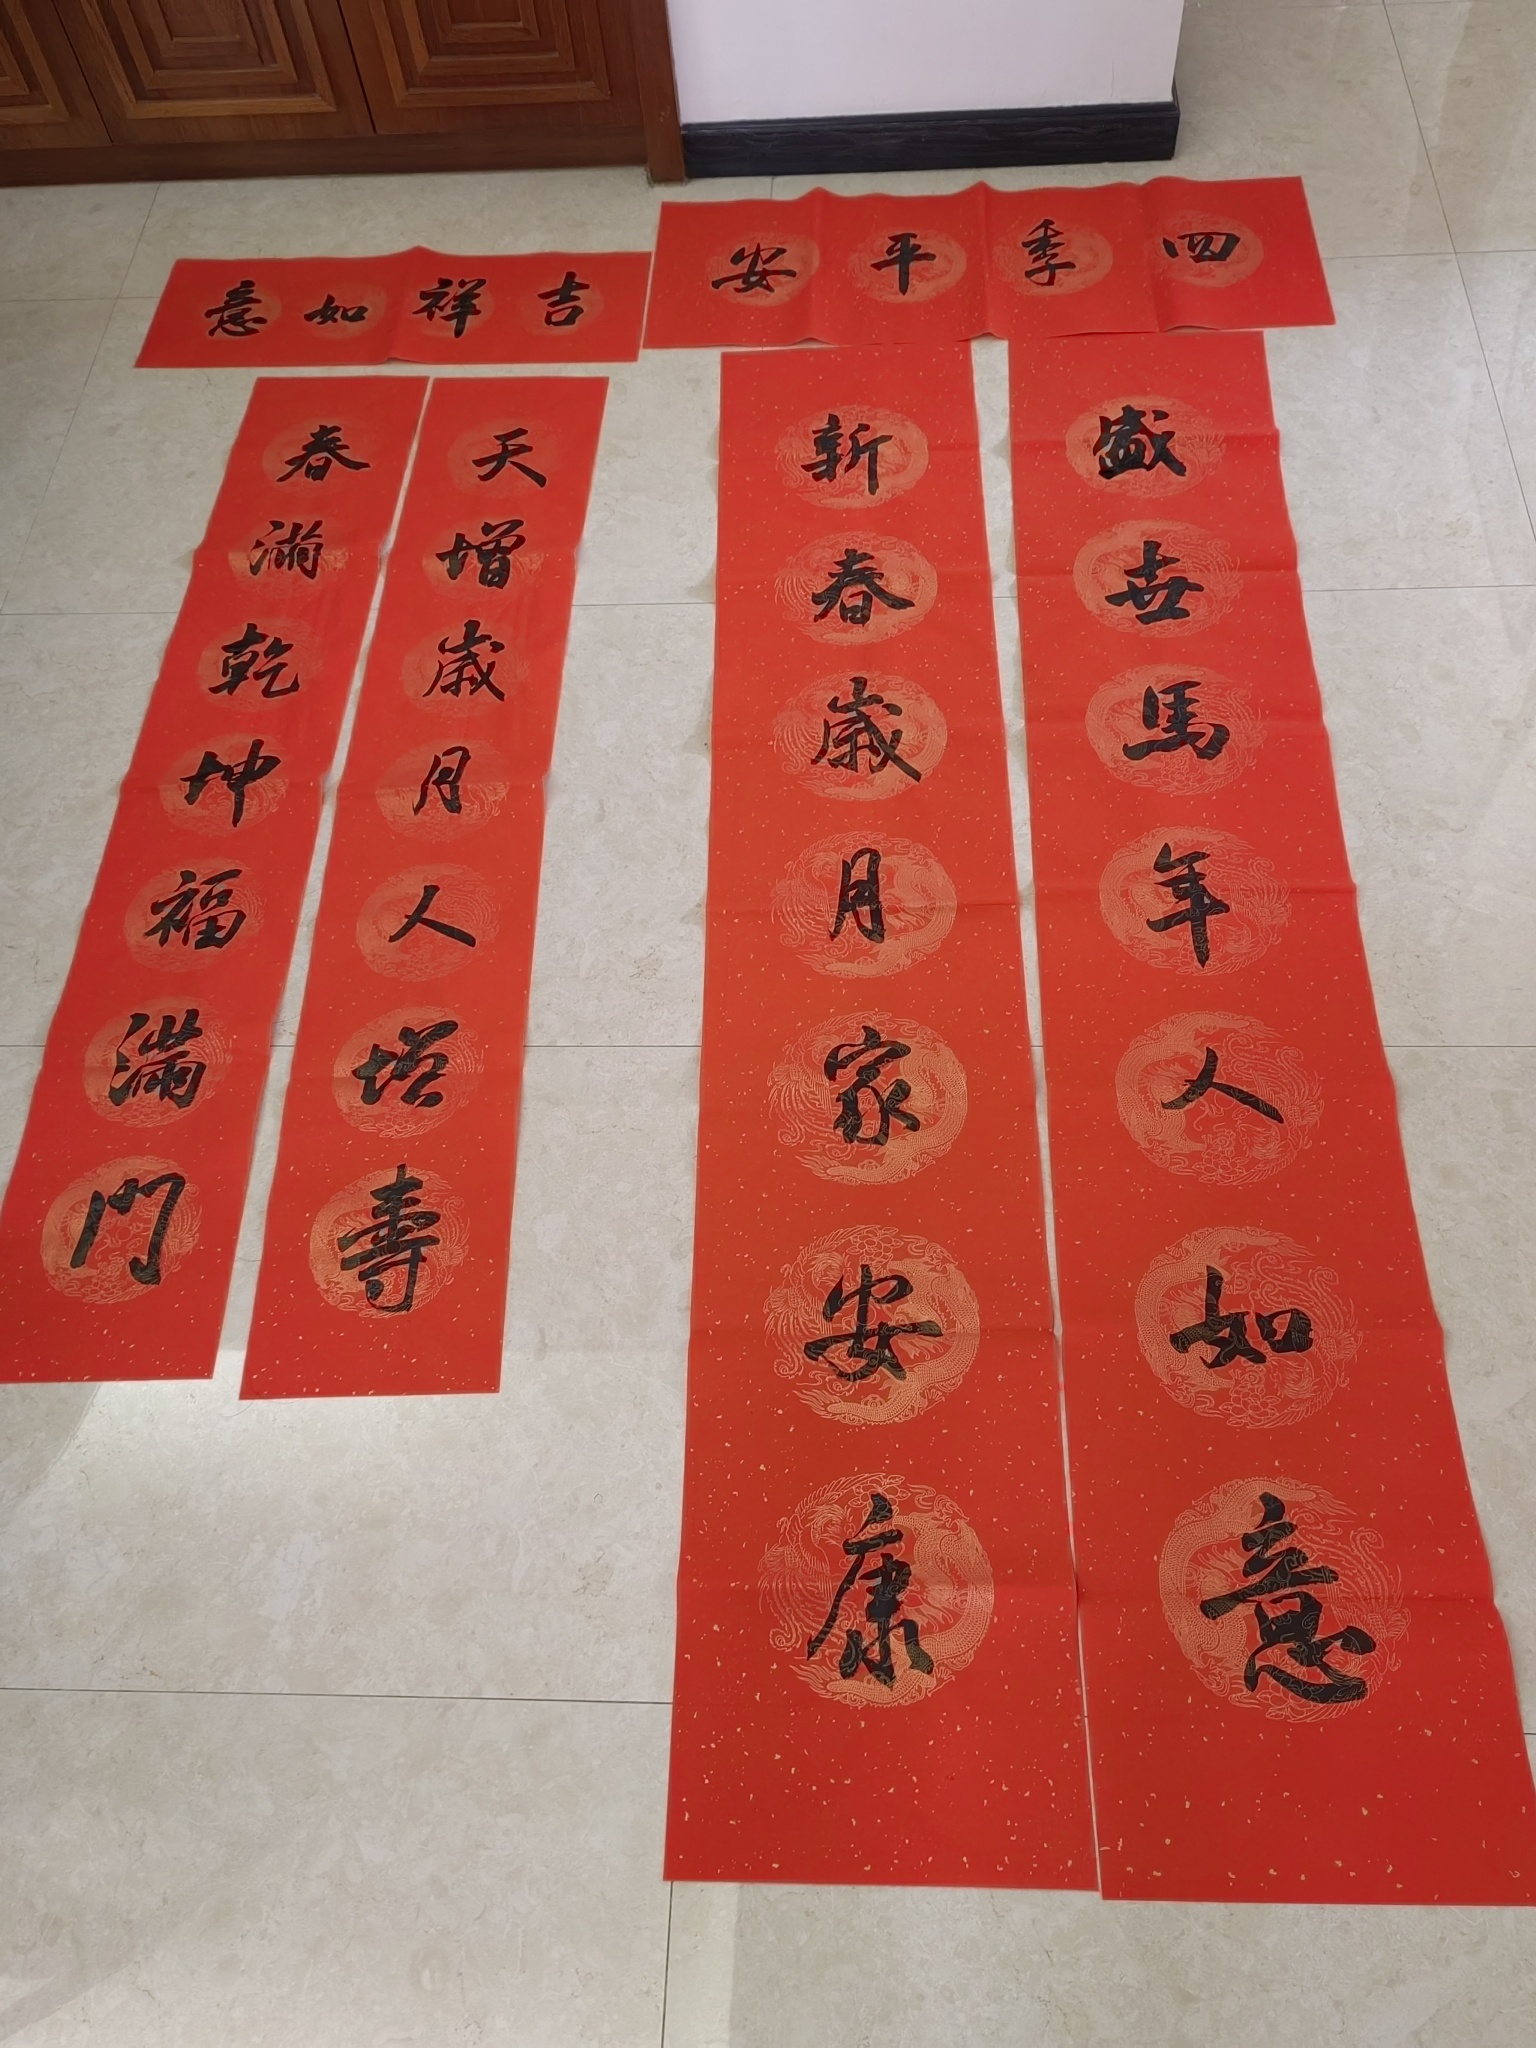 四季平安
盛世馬年人如意
新春歲月家安康
吉祥如意
天增歲月人增壽
春滿乾坤福滿門